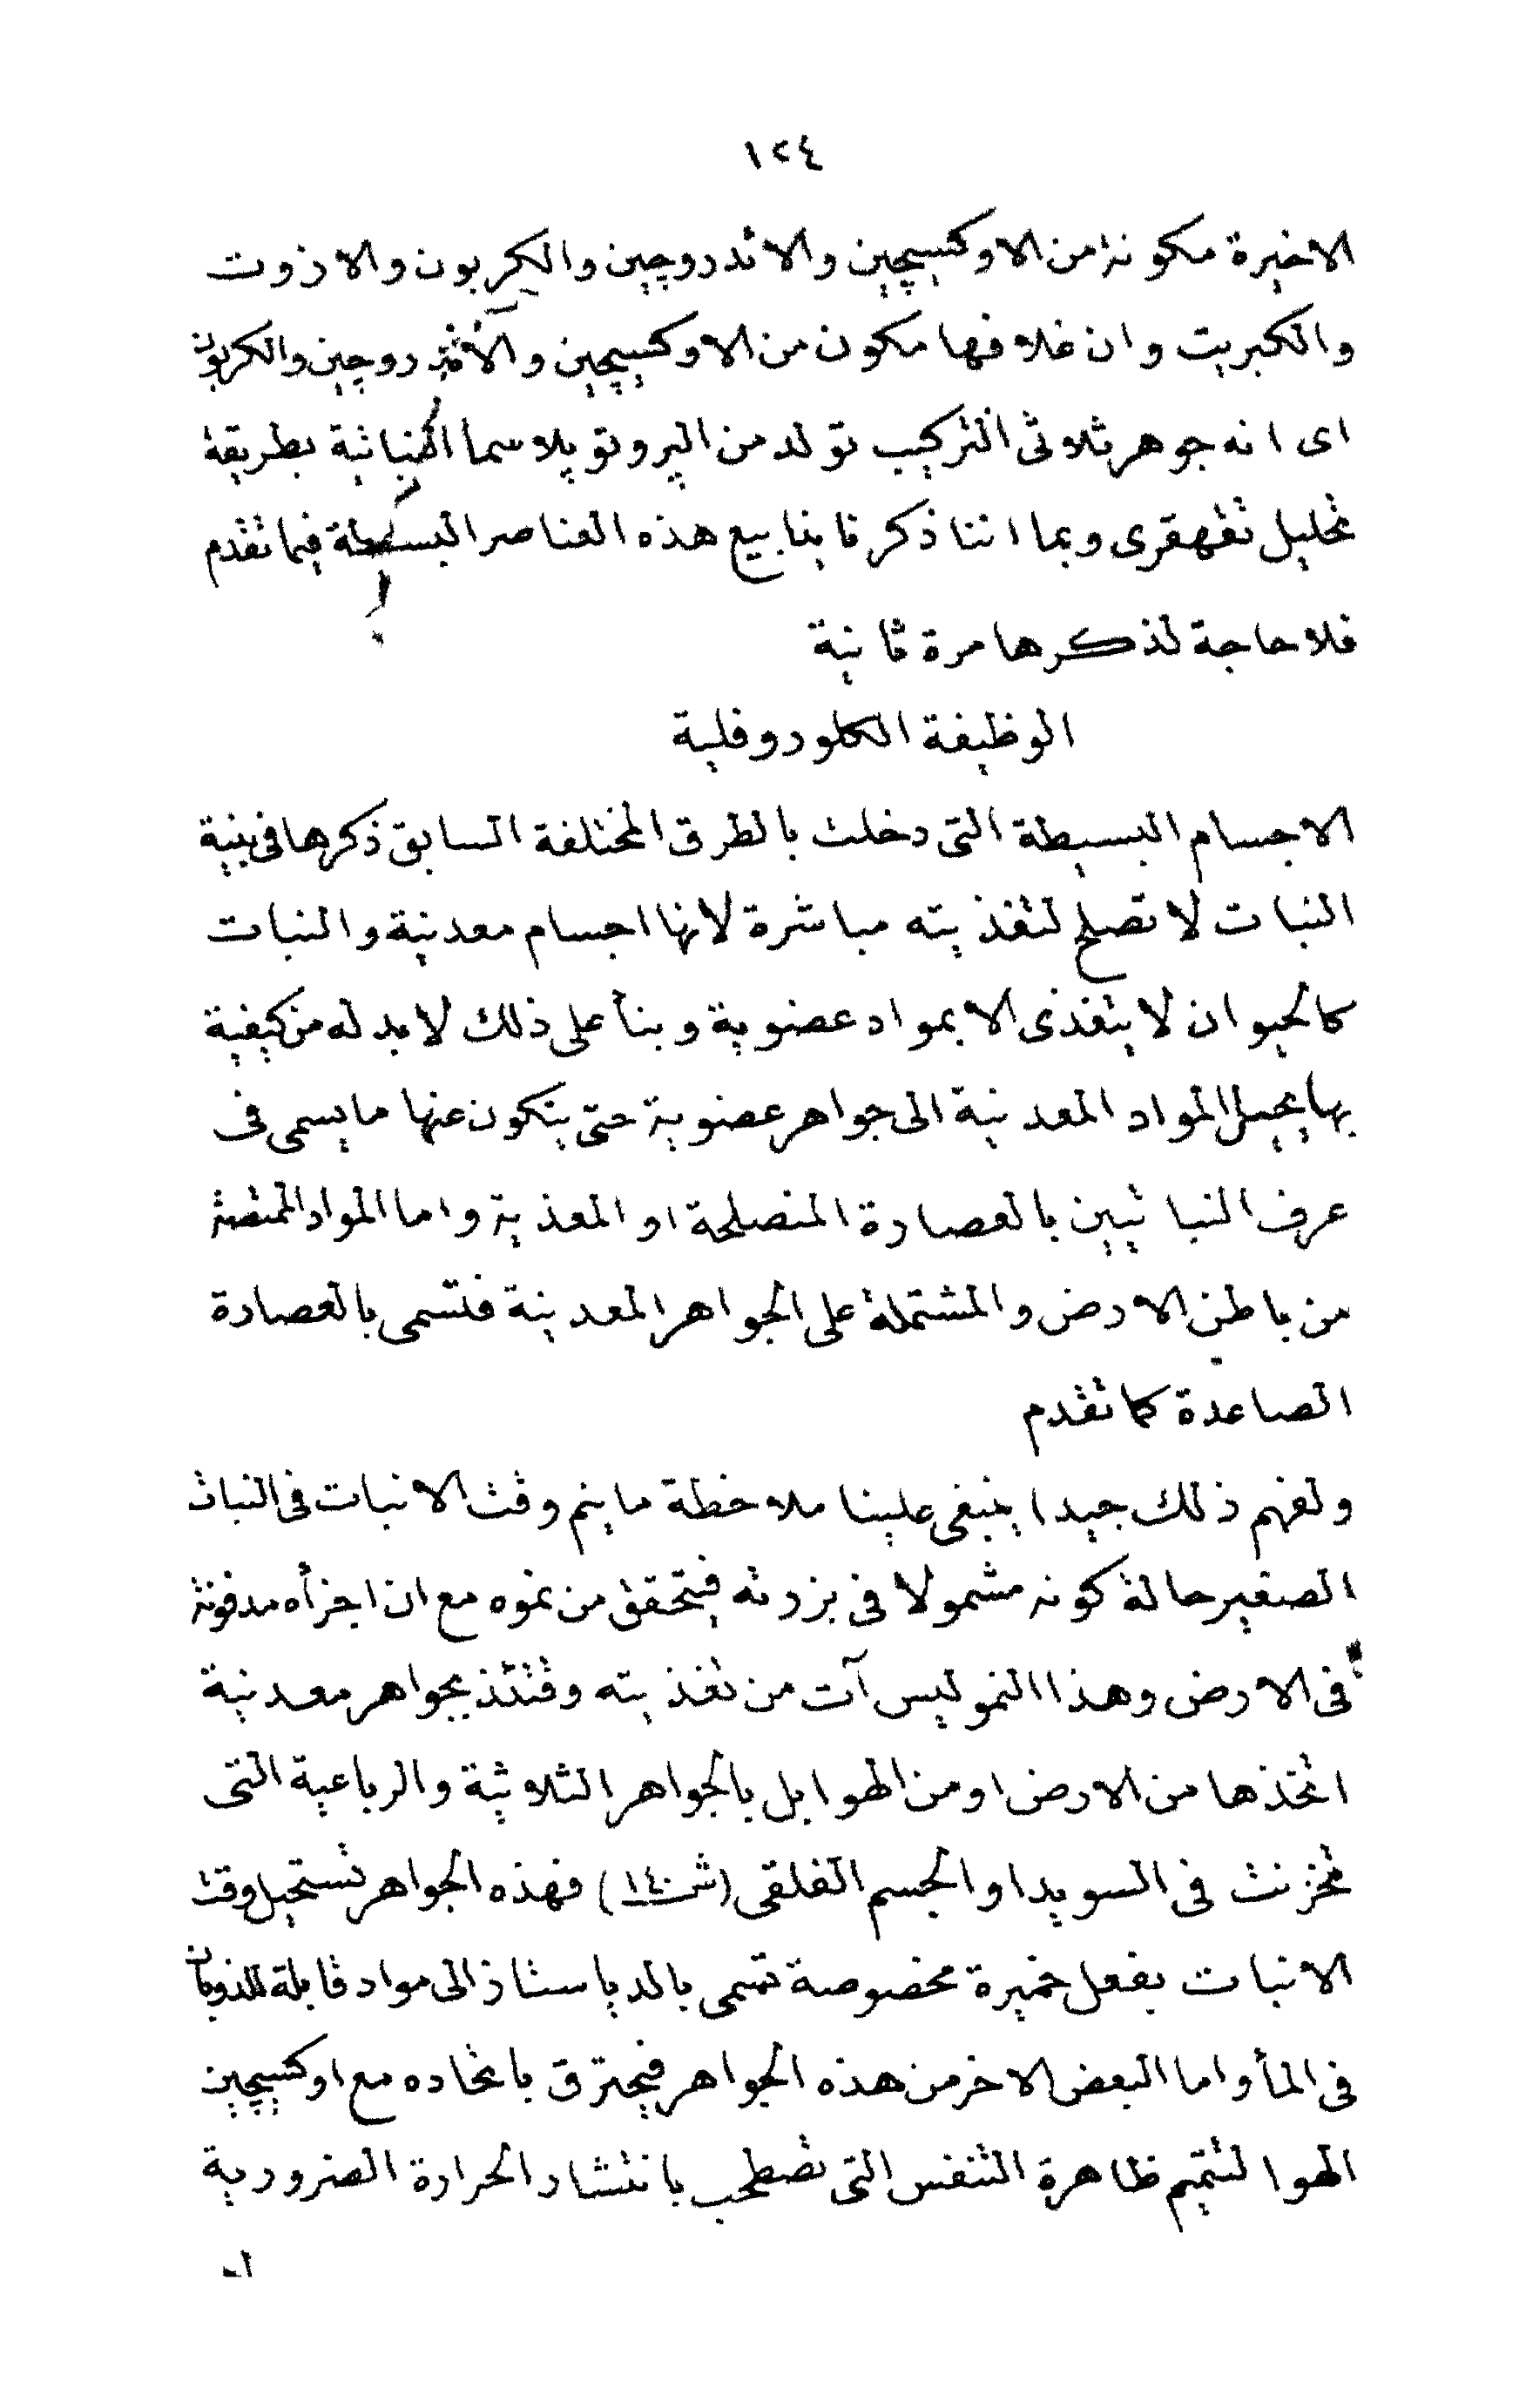 ١٢٤
الاخيرة مكونة من الاوكسيچين والائدروچين والكربون والازوت
والكبريت وان غلافها مكون من الاوكسيچين والائدروچين والكربون
اى انه جوهر ثلاثى التركيب تولد من الپروتوپلاسما النباتية بطريقة
تحليل تقهقرى وبما اننا ذكرنا ينابيع هذه العناصر البسيطة فيما تقدم
فلا حاجة لذكرها مرة ثانية
الوظيفة الكلوروفلية
الاجسام البسيطة التى دخلت بالطرق المختلفة السابق ذكرها فى بنية
النبات لا تصلح لتغذيته مباشرة لانها اجسام معدنية والنبات
كالحيوان لا يتغذى الا بمواد عضوية وبنأ على ذلك لا بد له من كيفية
بها يحيل المواد المعدنية الى جواهر عضوية حتى يتكون عنها ما يسمى فى
عرف النباتيين بالعصارة المنصلحة او المغذية واما المواد الممتصة
من باطن الارض والمشتملة على الجواهر المعدنية فتسمى بالعصارة
الصاعدة كما تقدم
ولفهم ذلك جيدا ينبغى علينا ملاحظة ما يتم وقت الانبات فى النبات
الصغير حالة كونه مشمولا فى بزرته فيتحقق من نموه مع ان اجزأه مدفونة
فى الارض وهذا النمو ليس آت من تغذيته وقتئذ بجواهر معدنية
اتخذها من الارض او من الهوا بل بالجواهر الثلاثية والرباعية التى
تخزنت فى السويدا والجسم الفلقى (ش ١٤٠) فهذه الجواهر تستحيل وقت
الانبات بفعل خميرة مخصوصة تسمى بالدياستاز الى مواد قابلة للذوبان
فى المأ واما البعض الاخر من هذه الجواهر فيحترق باتحاده مع اوكسيچين
الهوا لتتميم ظاهرة التنفس التى تصطحب بانتشار الحرارة الضرورية